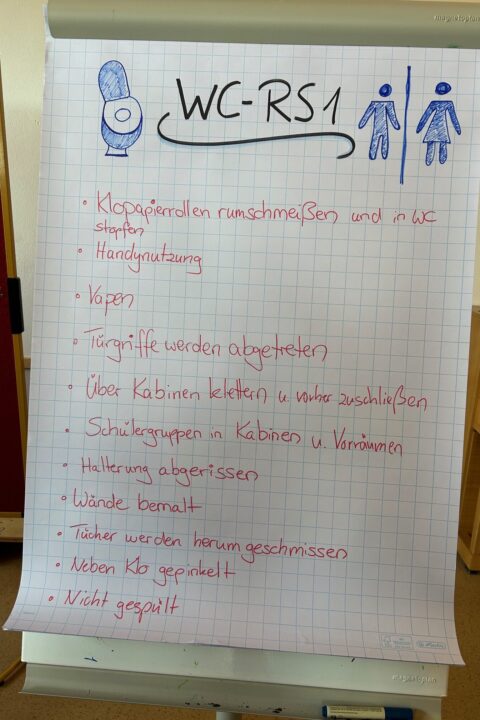 magnetoplan
WC-RS1
• Klopapierrollen rumschmeißen und in WC
stopfen
• Handynutzung
• Vapen
• Türgriffe werden abgetreten
• Über Kabinen klettern u. vorher zuschließen
• Schülergruppen in Kabinen u. Vorräumen
• Halterung abgerissen
• Wände bemalt
• Tücher werden herumgeschmissen
• Neben Klo gepinkelt
• Nicht gespült
magnetoplan